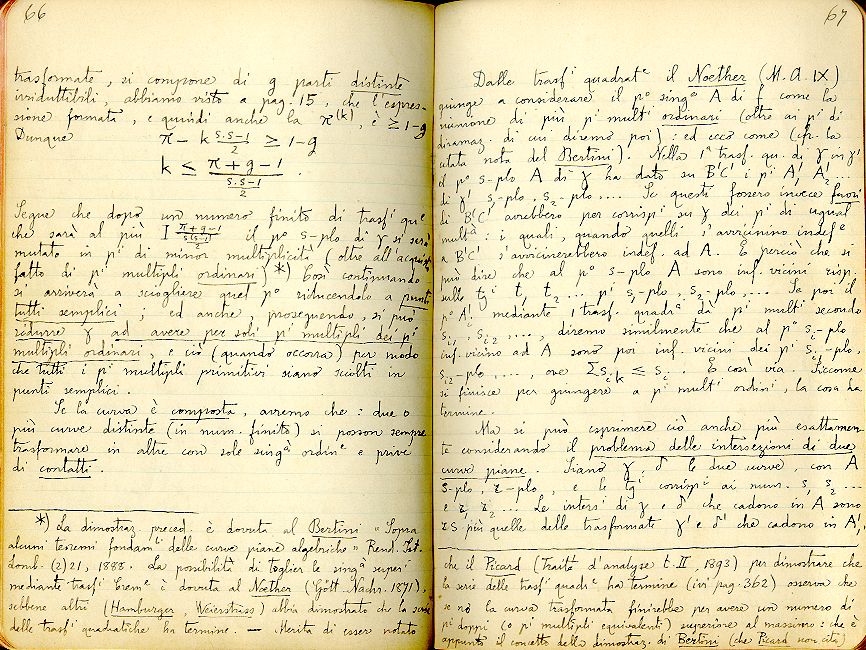 66
trasformate, si compone di g parti distinte
irriduttibili, abbiamo visto a pag. 15, che l'espres-
sione formata, e quindi anche la π^(k), è ≥ 1-g
Dunque π - k s.s-1/2 ≥ 1-g
k ≤ π+g-1 / s.s-1/2 .
Segue che dopo un numero finito di trasf^i qu^e
che sarà al più I π+g-1 / s(s-1)/2 il p^o s-plo di γ si sarà
mutato in p^i di minor multiplicità (oltre all'acquisto
fatto di p^i multipli ordinari) *) Così continuando
si arriverà a sciogliere quel p^o riducendolo a punti
tutti semplici; ed anche, proseguendo, si può
ridurre γ ad avere per soli p^i multipli dei p^i
multipli ordinari, e ciò (quando occorra) per modo
che tutti i p^i multipli primitivi siano sciolti in
punti semplici.
Se la curva è composta, avremo che: due o
più curve distinte (in num. finito) si posson sempre
trasformare in altre con sole sing^à ordin^e e prive
di contatti.
*) La dimostraz. preced. è dovuta al Bertini "Sopra
alcuni teoremi fondam^i delle curve piane algebriche" Rend. Ist.
Lomb. (2) 21, 1888. La possibilità di toglier le sing^à super^i
mediante trasf^i Crem^e è dovuta al Noether (Gött. Nachr. 1871),
sebbene altri (Hamburger, Weierstrass) abbia dimostrato che la serie
delle trasf^i quadratiche ha termine. — Merita di esser notato
67
Dalle trasf^i quadrat^e il Noether (M.A. IX)
giunge a considerare il p^o sing^e A di f come la
riunione di più p^i mult^i ordinari (oltre ai p^i di
diramaz. di cui diremo poi): ed ecco come (cfr. la
citata nota del Bertini). Nella 1^a trasf. qu. di γ in γ'
il p^o s-plo A di γ ha dato su B'C' i p^i A'_1 A'_2 ...
di γ' s_1-plo, s_2-plo, .... Se questi fossero invece fuori
di B'C' avrebbero per corrisp^i su γ dei p^i di ugual
mult^à: i quali, quando quelli s'avvicinino indef^e
a B'C' s'avvicinerebbero indef. ad A. È perciò che si
può dire che al p^o s-plo A sono inf. vicini risp.
sulle tg^i t_1 t_2 ... p^i s_1-plo, s_2-plo, .... Se poi il
p^o A'_i mediante 1 trasf. quadr^a dà p^i mult^i secondo
s_i1, s_i2, ..., diremo similmente che al p^o s_i-plo
inf. vicino ad A sono poi inf. vicini dei p^i s_i1-plo,
s_i2-plo, ..., ove Σ s_ik ≤ s_i. E così via. Siccome
si finisce per giungere a p^i mult^i ordin^i, la cosa ha
termine.
Ma si può esprimere ciò anche più esattamen-
te considerando il problema delle intersezioni di due
curve piane. Siano γ, δ le due curve, con A
s-plo, r-plo, e le tg^i corrisp^i ai num. s_1 s_2 ...
e r_1 r_2 .... Le inters^i di γ e δ che cadono in A sono
rs più quelle delle trasformate γ' e δ' che cadono in A'_1,
che il Picard (Traité d'analyse t. II, 1893) per dimostrare che
la serie delle trasf^i quadr^e ha termine (ivi pag. 362) osserva che
se nò la curva trasformata finirebbe per avere un numero di
p^i doppi (o p^i multipli equivalenti) superiore al massimo: che è
appunto il concetto della dimostraz. di Bertini (che Picard non cita)